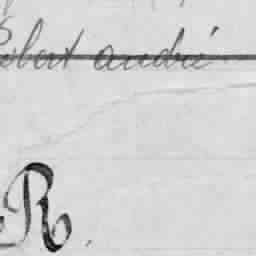 Robert André
R.